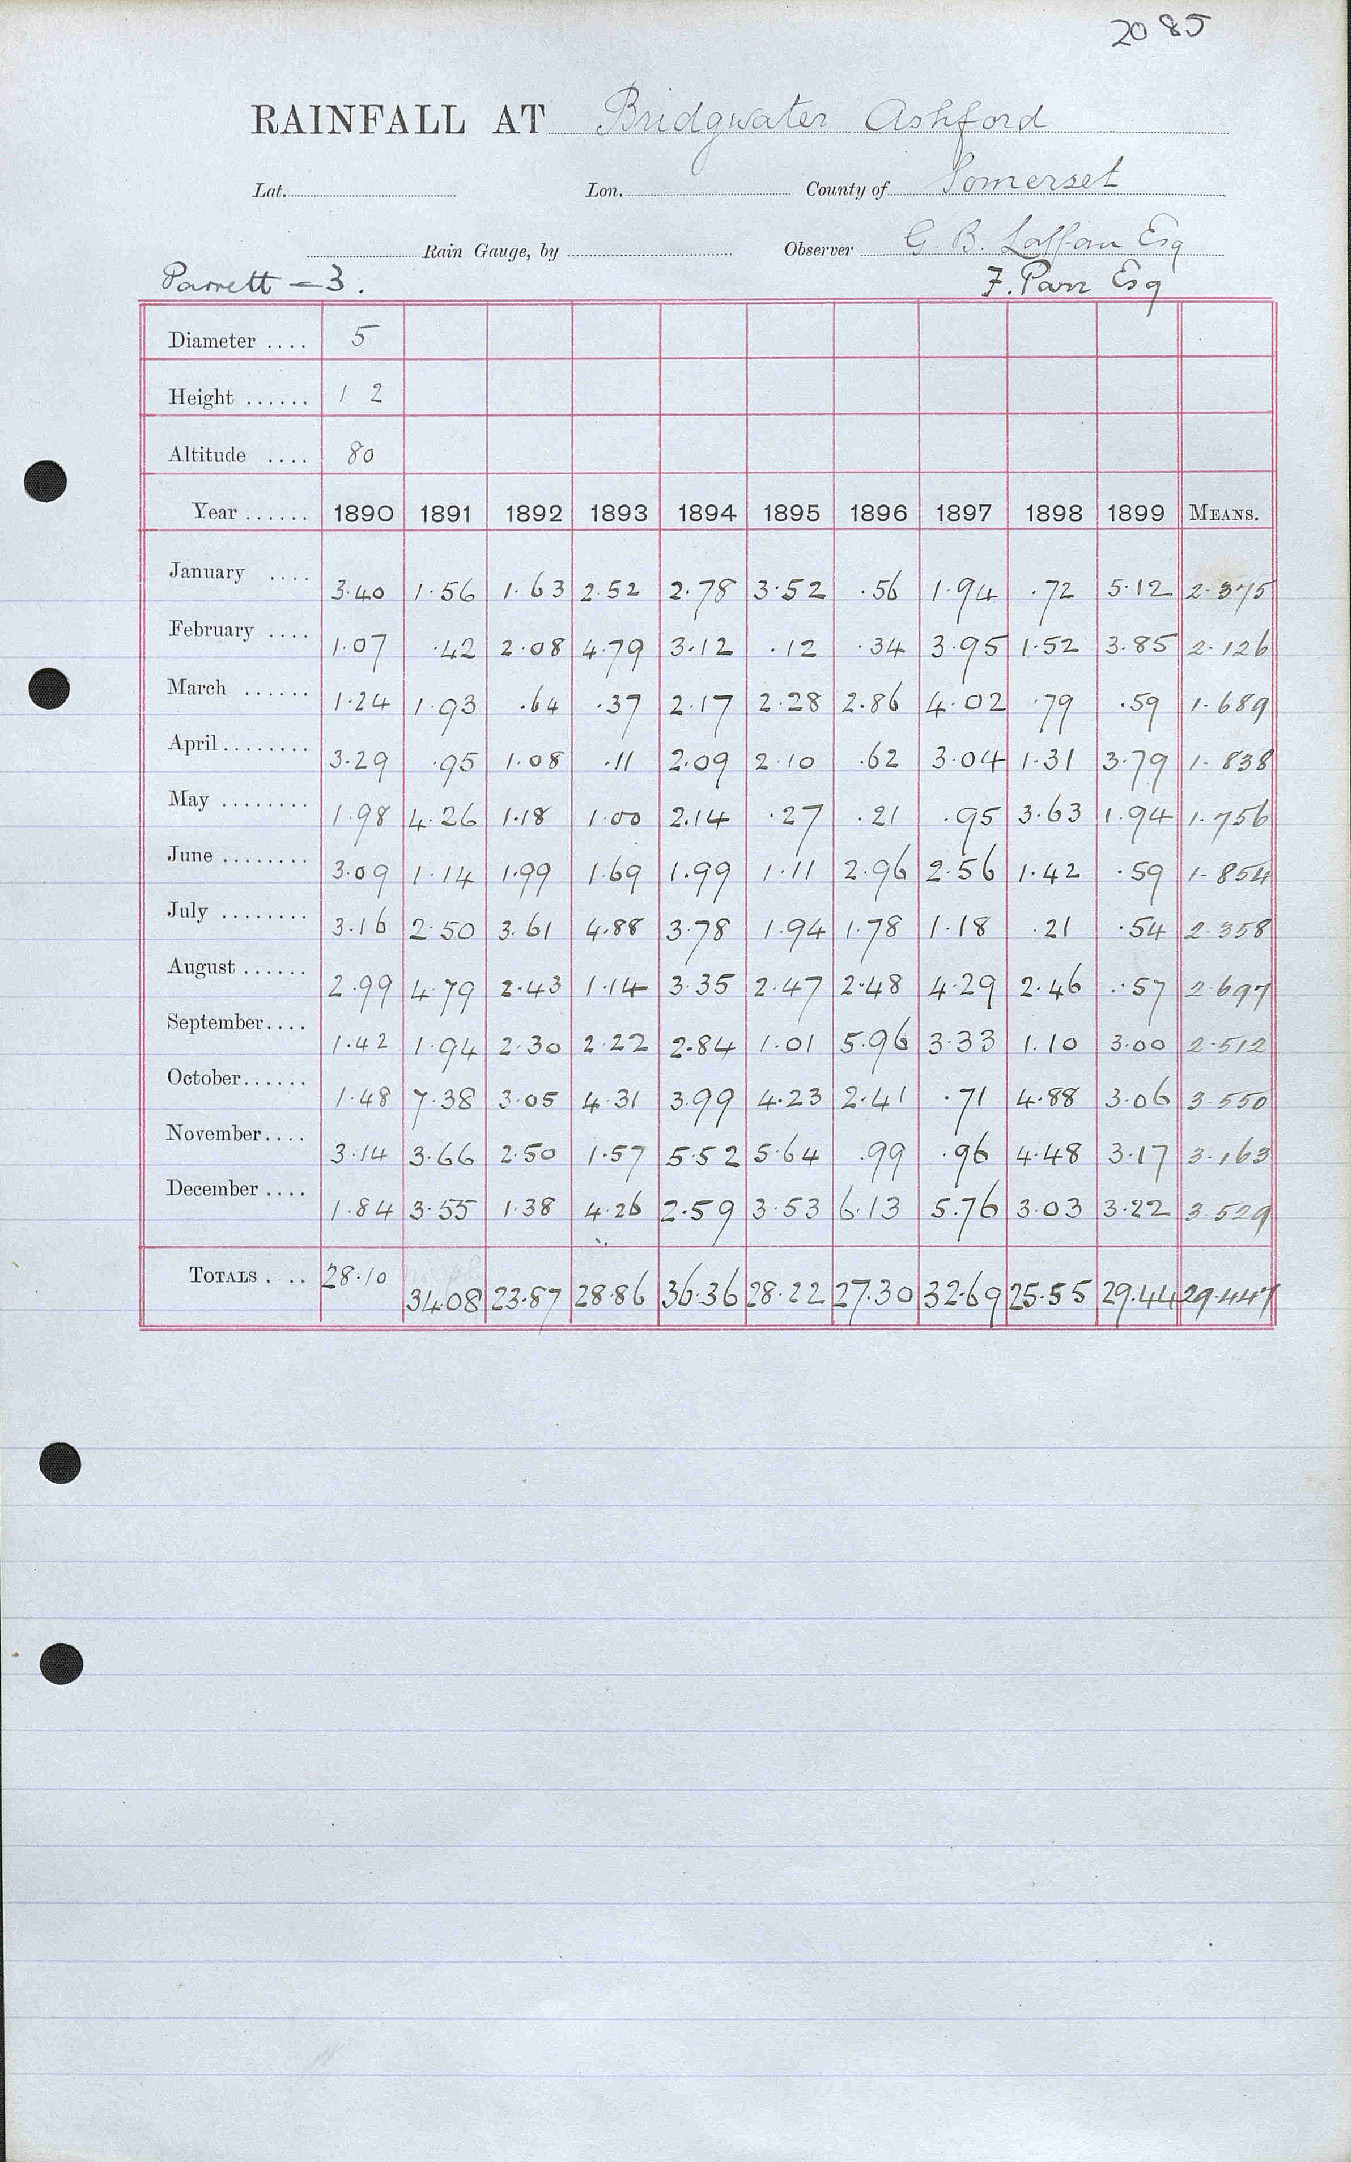 2085
RAINFALL AT Bridgwater Ashford
Lat. Lon. County of Somerset
Rain Gauge, by Observer G. B. Laffan Esq
Parrett - 3. F. Parr Esq
Diameter .... 5
Height ...... 1 2
Altitude .... 80
Year ...... 1890 1891 1892 1893 1894 1895 1896 1897 1898 1899 MEANS.
January .... 3.40 1.56 1.63 2.52 2.78 3.52 .56 1.94 .72 5.12 2.375
February .... 1.07 .42 2.08 4.79 3.12 .12 .34 3.95 1.52 3.85 2.126
March ...... 1.24 1.93 .64 .37 2.17 2.28 2.86 4.02 .79 .59 1.689
April ........ 3.29 .95 1.08 .11 2.09 2.10 .62 3.04 1.31 3.79 1.838
May ........ 1.98 4.26 1.18 1.00 2.14 .27 .21 .95 3.63 1.94 1.756
June ........ 3.09 1.14 1.99 1.69 1.99 1.11 2.96 2.56 1.42 .59 1.854
July ........ 3.16 2.50 3.61 4.88 3.78 1.94 1.78 1.18 .21 .54 2.358
August ...... 2.99 4.79 2.43 1.14 3.35 2.47 2.48 4.29 2.46 .57 2.697
September .... 1.42 1.94 2.30 2.22 2.84 1.01 5.96 3.33 1.10 3.00 2.512
October ...... 1.48 7.38 3.05 4.31 3.99 4.23 2.41 .71 4.88 3.06 3.550
November .... 3.14 3.66 2.50 1.57 5.52 5.64 .99 .96 4.48 3.17 3.163
December .... 1.84 3.55 1.38 4.26 2.59 3.53 6.13 5.76 3.03 3.22 3.529
TOTALS . .. 28.10 34.08 23.87 28.86 36.36 28.22 27.30 32.69 25.55 29.44 29.447